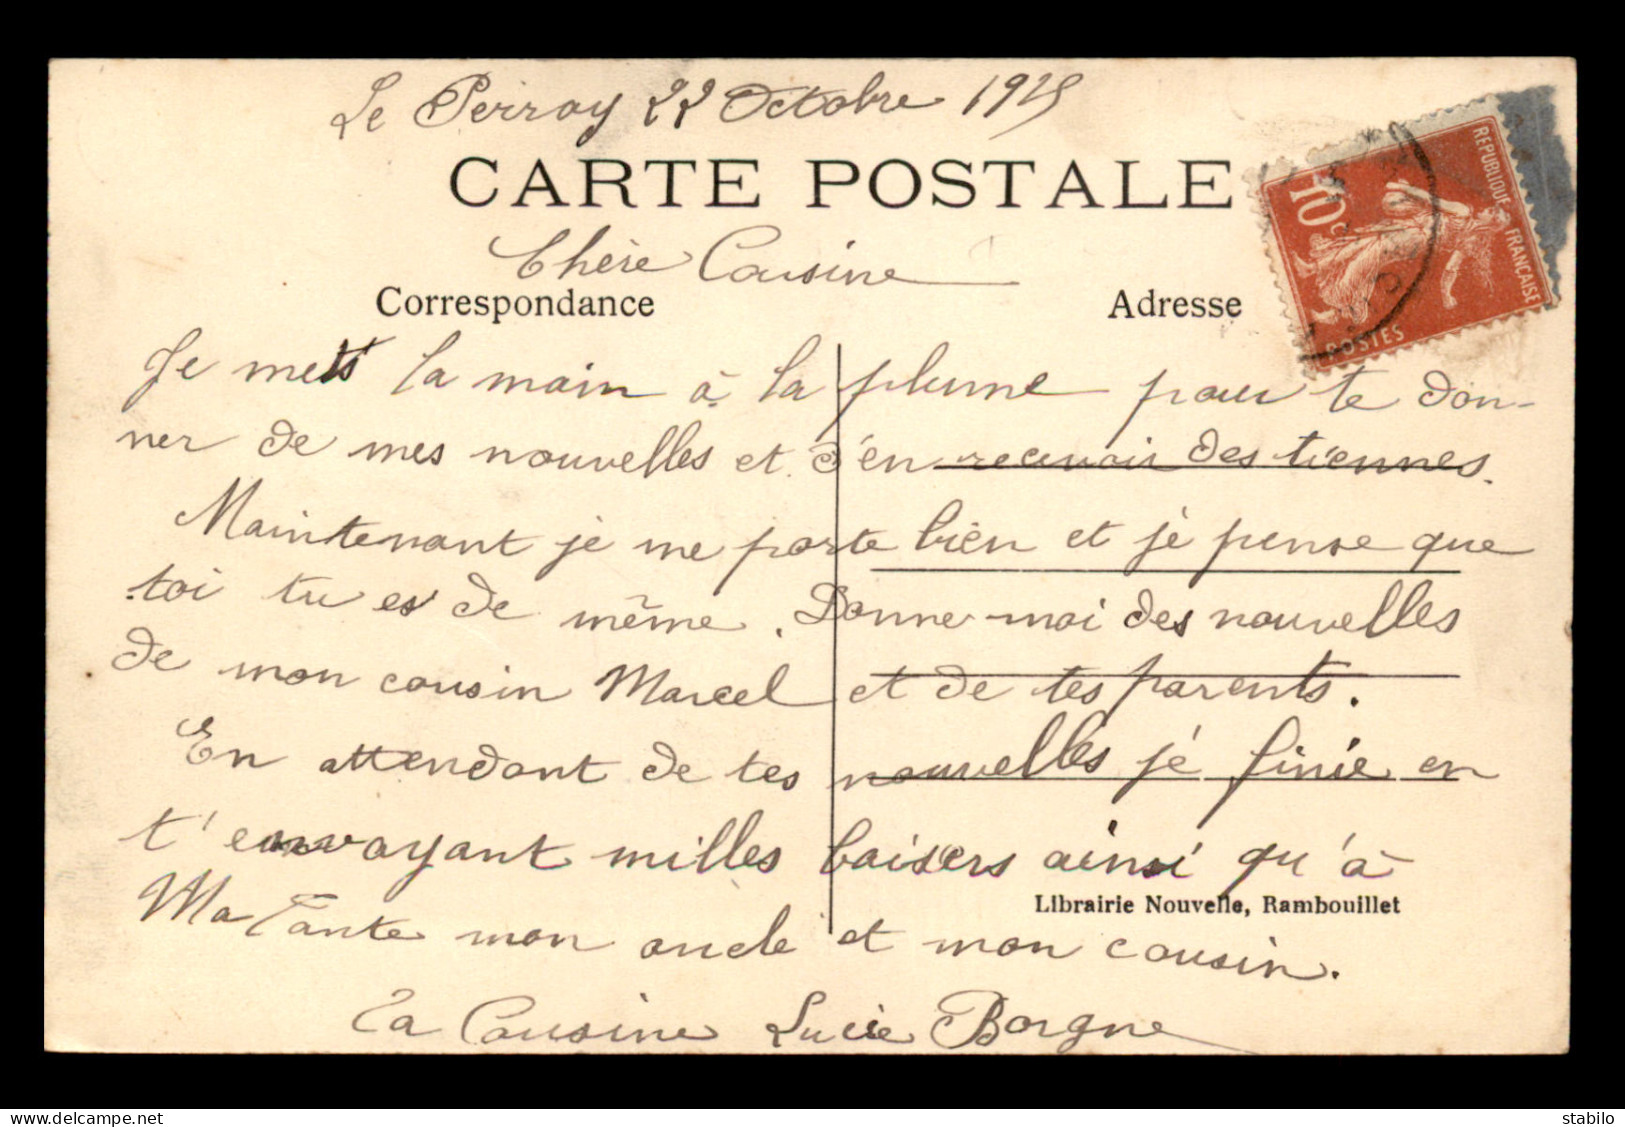 Le Perray 22 Octobre 1925
CARTE POSTALE
RÉPUBLIQUE FRANÇAISE
10c
POSTES
Chère Cousine
Correspondance
Adresse
Je mets la main à la plume pour te don-
ner de mes nouvelles et d'en recevoir des tiennes.
Maintenant je me porte bien et je pense que
toi tu es de même. Donne-moi des nouvelles
de mon cousin Marcel et de tes parents.
En attendant de tes nouvelles je finie en
t'envoyant milles baisers ainsi qu'à
Librairie Nouvelle, Rambouillet
Ma Tante mon oncle et mon cousin.
Ta Cousine Lucie Borgne
stabilo